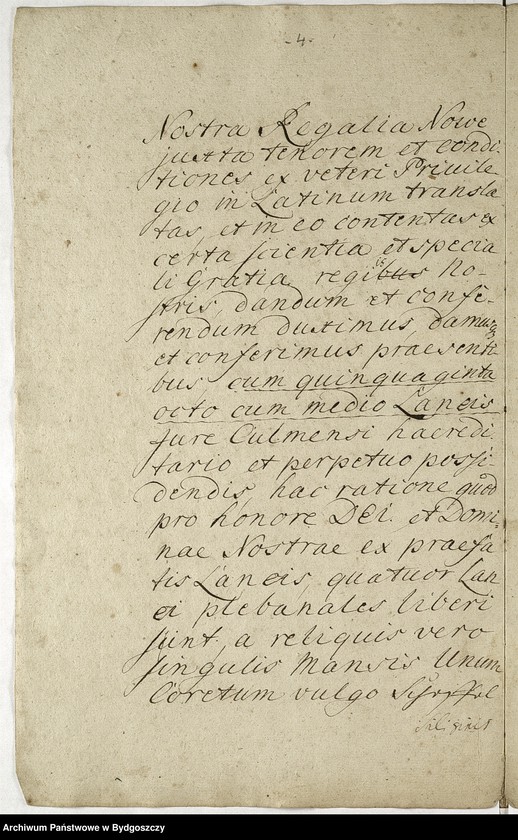 - 4. -
Nostra Regalia Nowe
juxta tenorem et condi-
tiones ex veteri Privile-
gio in Latinum transla
tas, et in eo contentas ex
certa scientia et specia
li Gratia regibus no-
stris, dandum et confe-
rendum duximus, damusq
et conferimus praesenti
bus cum quinquaginta
octo cum medio Laneis
Jure Culmensi haeredi
tario et perpetuo possi-
dendis hac ratione quod
pro honore DEi. et Domi-
nae Nostrae ex praefa
tis Laneis quatuor Lan
ei plebanales liberi
sint, a reliquis vero
singulis Mansis Unum
Coretum vulgo
siliginis
Archiwum Państwowe w Bydgoszczy